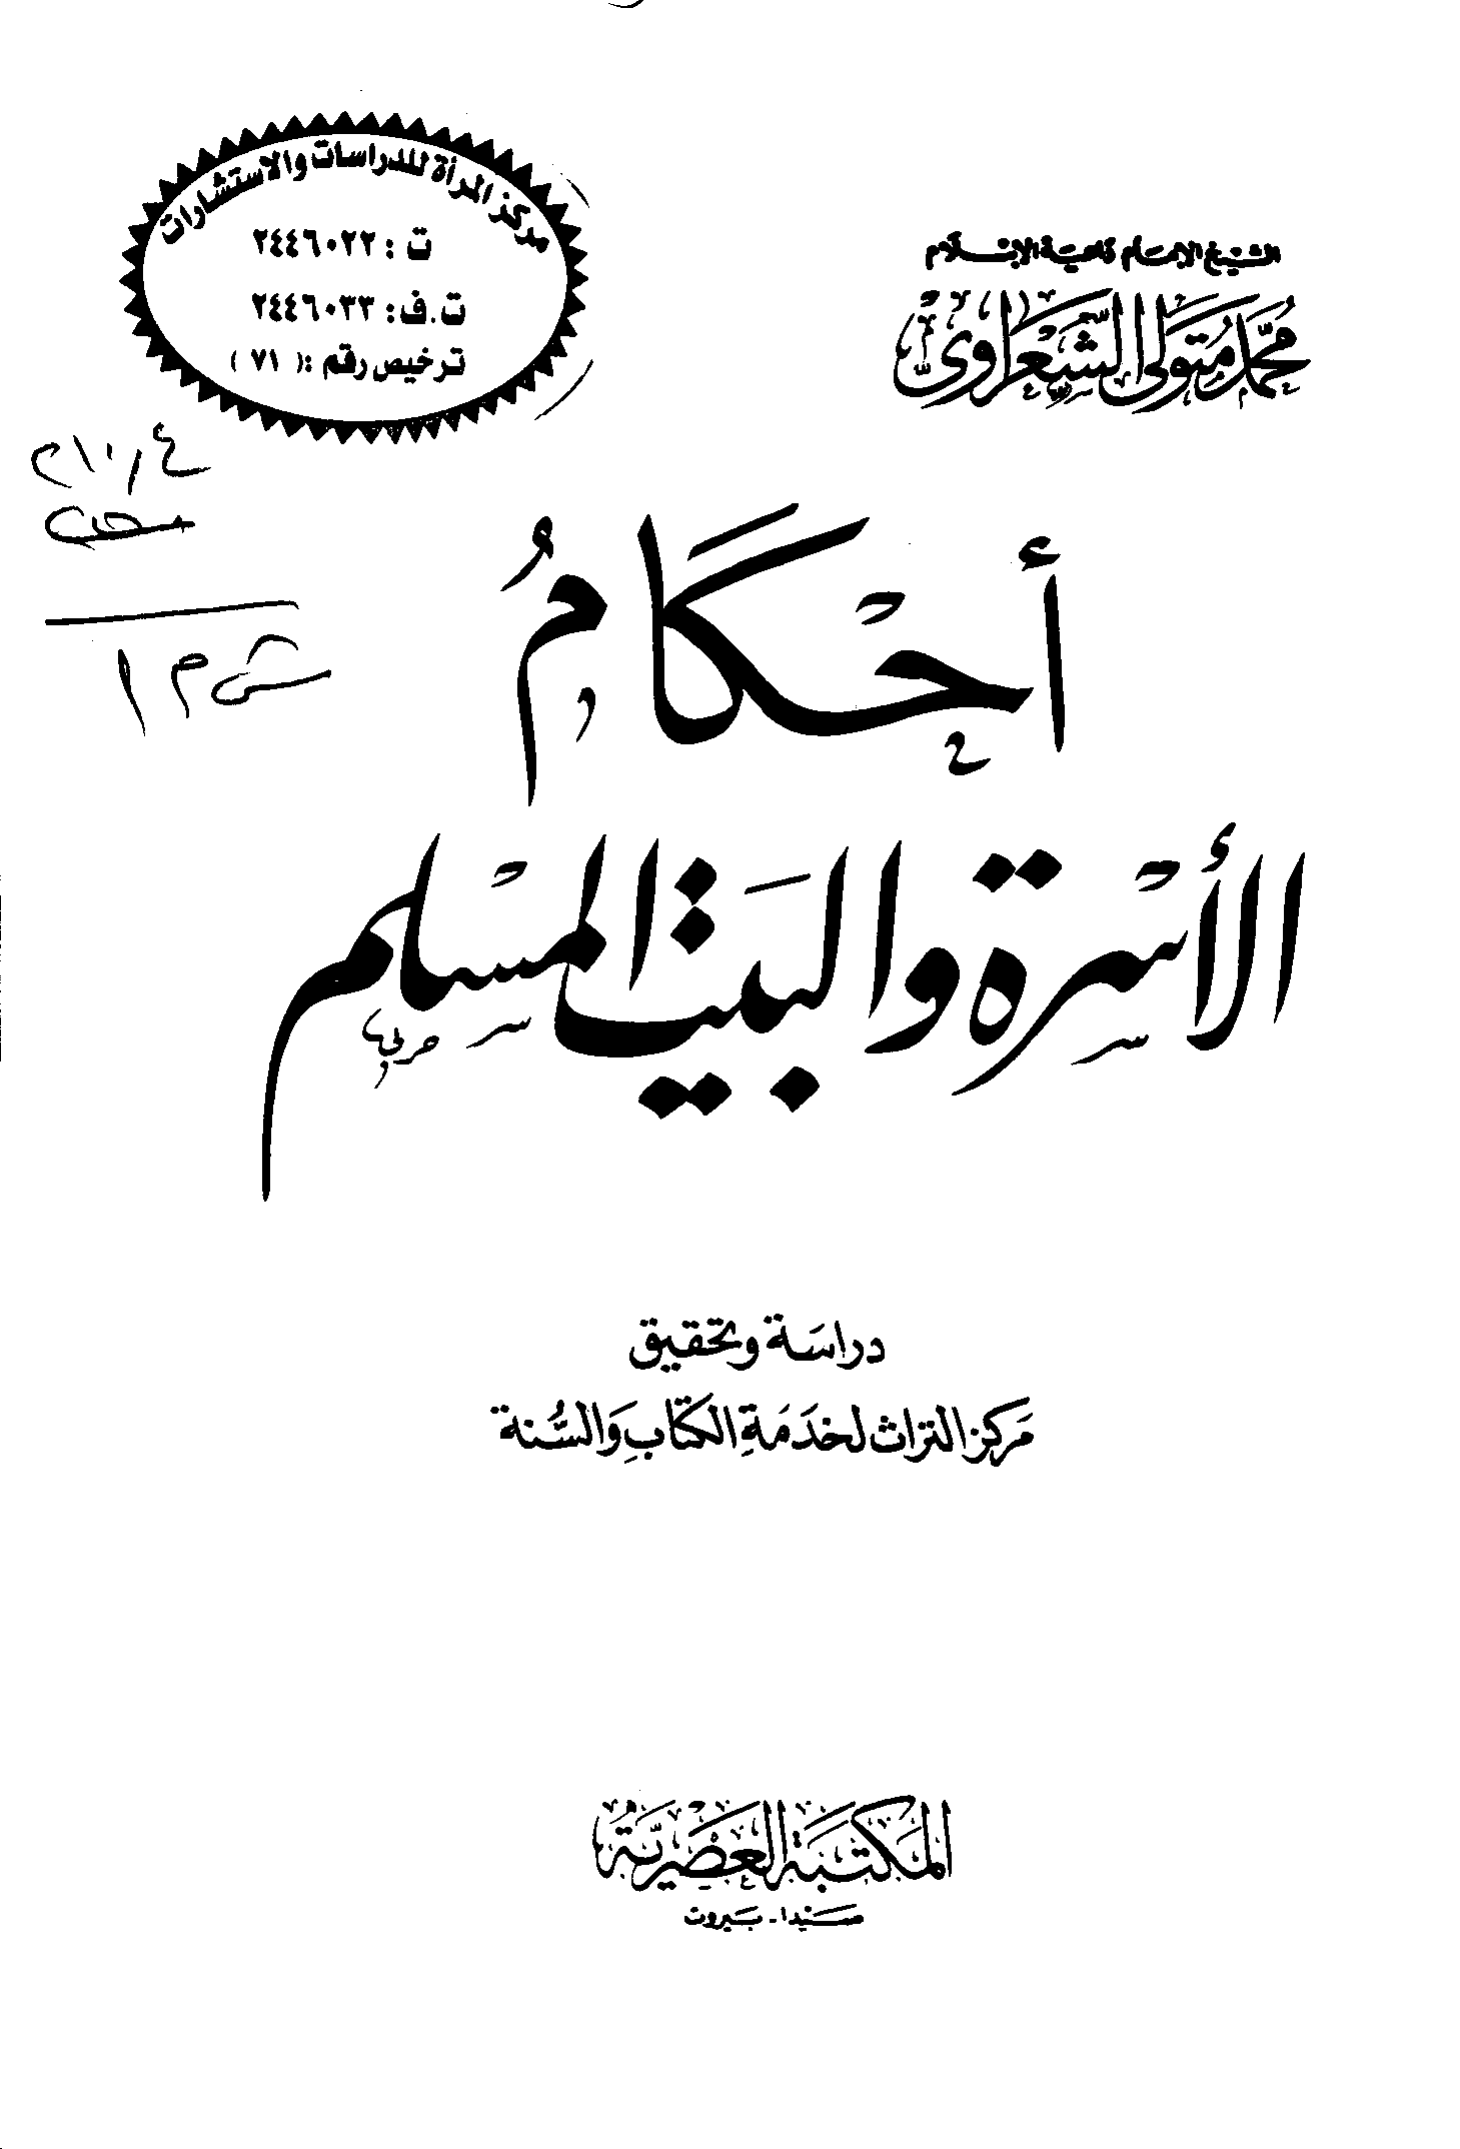 مركز المرأة للدراسات والاستشارات
ت : ٢٤٤٦٠٢٢
ت.ف: ٢٤٤٦٠٣٣
ترخيص رقم :( ٧١ )
الشيخ الإمام داعية الإسلام
محمد متولى الشعراوى
أَحْكَامُ
الأسْرة والبَيت المسْلم
دراسَة وتحقيق
مَركز التراث لخدَمَةِ الكتَابِ وَالسُّنة
المكتبة العصرية
صَيدا - بَيروت